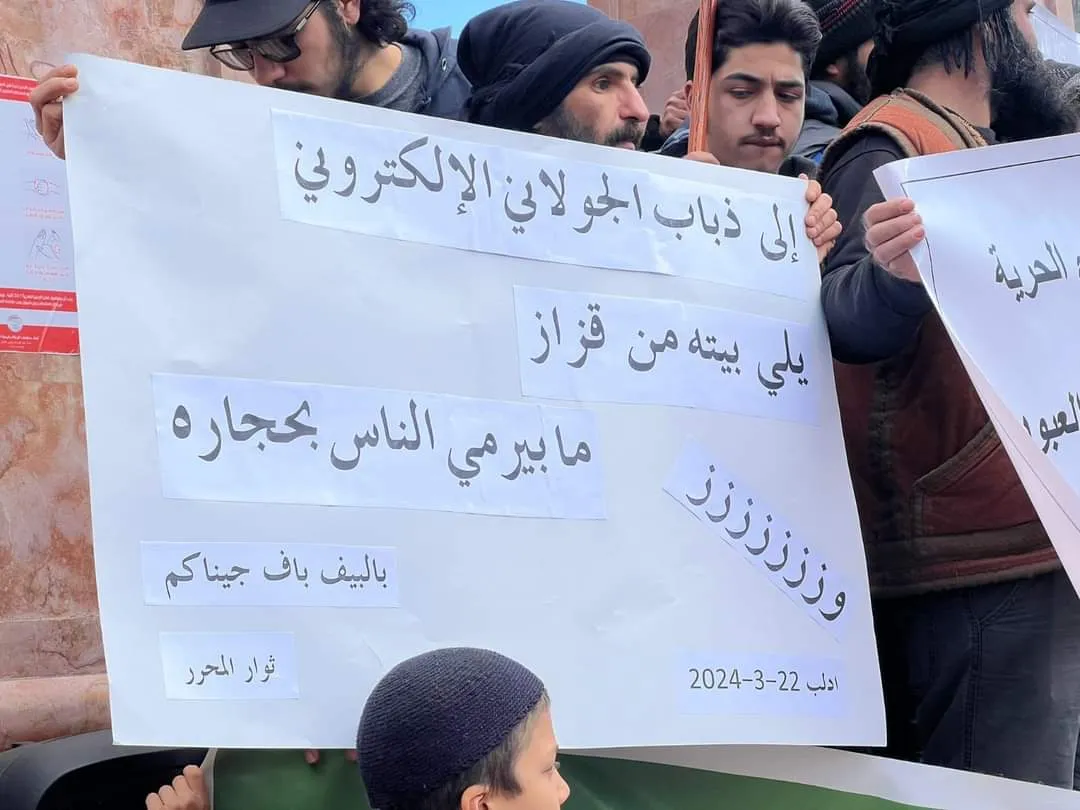 إلى ذباب الجولاني الإلكتروني
يلي بيته من قزاز
ما بيرمي الناس بحجاره
وزززززز
بالبيف باف جيناكم
ثوار المحرر
ادلب 22-3-2024
الحرية
العبور